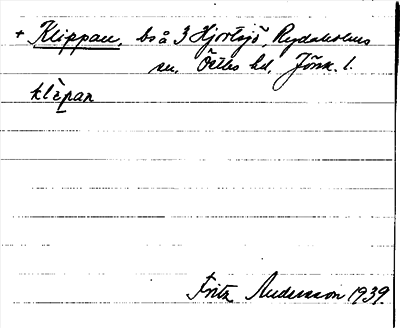 + Klippan, bs å 3 Hjortsjö, Rydaholms
sn, Östbo hd, Jönk. l.
klìpan
Fritz Andersson 1939.